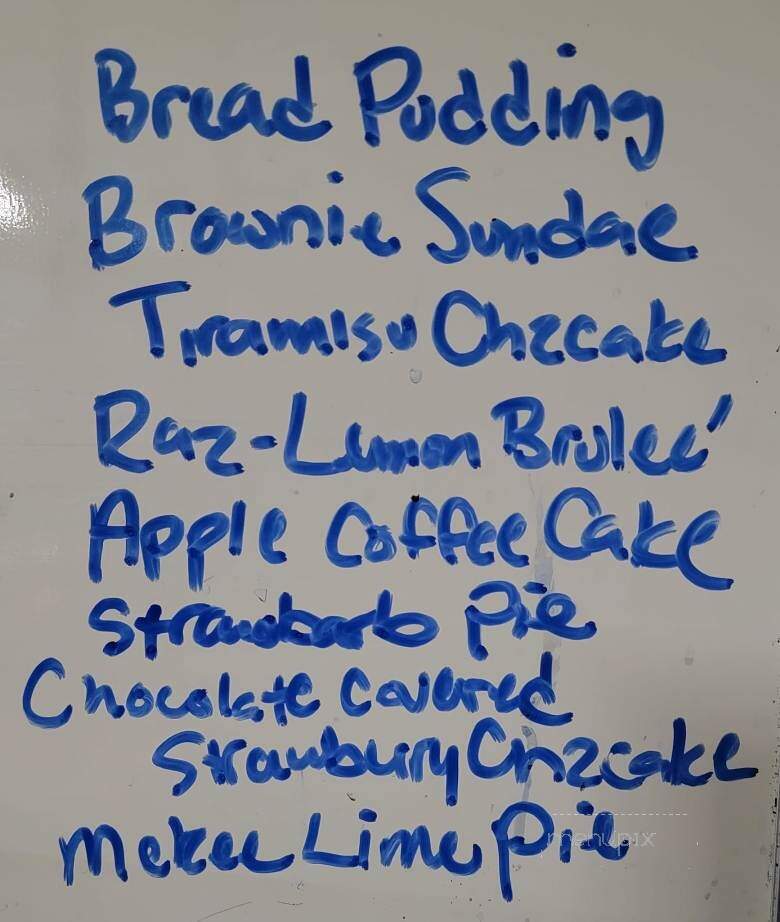 Bread Pudding
Brownie Sundae
Tiramisu Chzcake
Raz-Lemon Brulee'
Apple Coffee Cake
Strawbarb Pie
Chocolate Covered
Strawbury Chzcake
Mckee Lime Pie
menupix